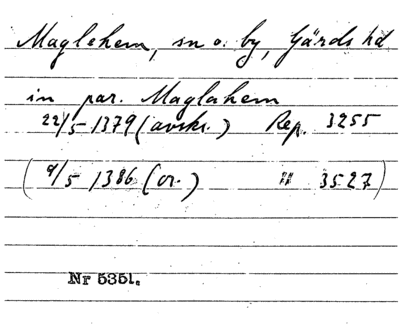 Maglehem, sn o. by, Gärds hd
in par. Maglahem
22/5 1379 (avskr.) Rep. 3255
(9/5 1386 (or.) " 3527)
Nr 5351.